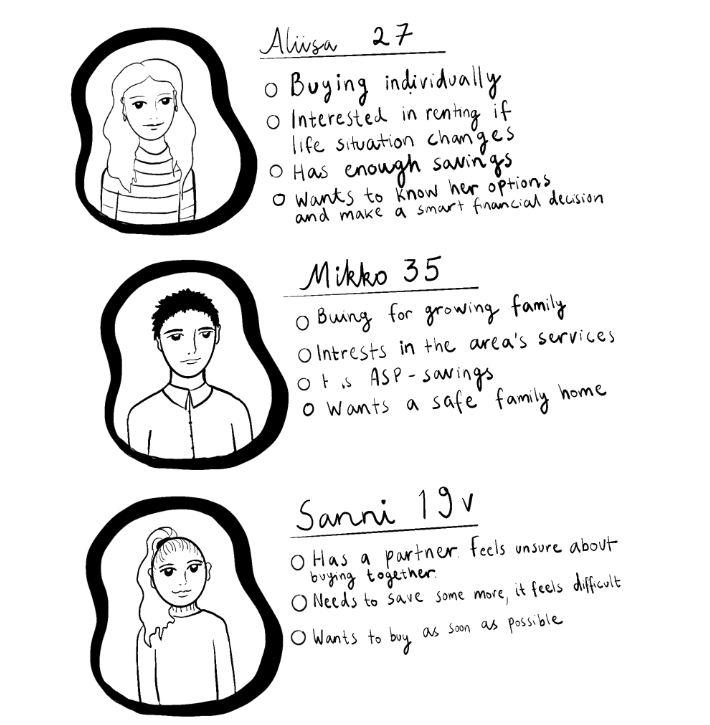 Aliisa 27
Buying individually
Interested in renting if
life situation changes
Has enough savings
Wants to know her options
and make a smart financial decision
Mikko 35
Buing for growing family
Intrests in the area's services
ASP-savings
Wants a safe family home
Sanni 19v
Has a partner. Feels unsure about
buying together.
Needs to save some more, it feels difficult
Wants to buy as soon as possible